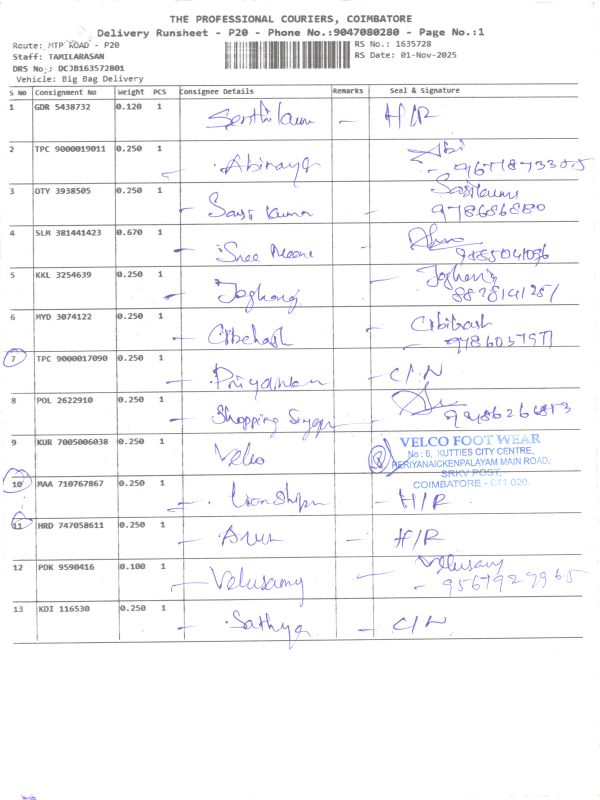 THE PROFESSIONAL COURIERS, COIMBATORE
Delivery Runsheet - P20 - Phone No.:9047080280 - Page No.:1
Route: MTP ROAD - P20
RS No.: 1635728
Staff: TAMILARASAN
RS Date: 01-Nov-2025
DRS No.: DCJB163572801
Vehicle: Big Bag Delivery
S No Consignment No Weight PCS Consignee Details Remarks Seal & Signature
1 GDR 5438732 0.120 1 Senthil - H/R
2 TPC 9000019011 0.250 1 Abinaya Abi
3 OTY 3938505 0.250 1 Sasi Kumar Sasikumar
978686880
4 SLM 381441423 0.670 1 Sree Meena
5 KKL 3254639 0.250 1
6 MYD 3074122 0.250 1
7 TPC 9000017090 0.250 1 Priyanka - C/N
8 POL 2622910 0.250 1 Shopping
9 KUR 7005006038 0.250 1 Velco VELCO FOOT WEAR
No : 6, KUTTIES CITY CENTRE,
PERIYANAICKENPALAYAM MAIN ROAD,
SRKV POST,
COIMBATORE - 641 020.
10 MAA 710767867 0.250 1 - H/R
11 HRD 747058611 0.250 1 - Arun - H/R
12 PDK 9590416 0.100 1 - Velusamy - Velusamy
- 9567927965
13 KDI 116530 0.250 1 - Sathya - C/N